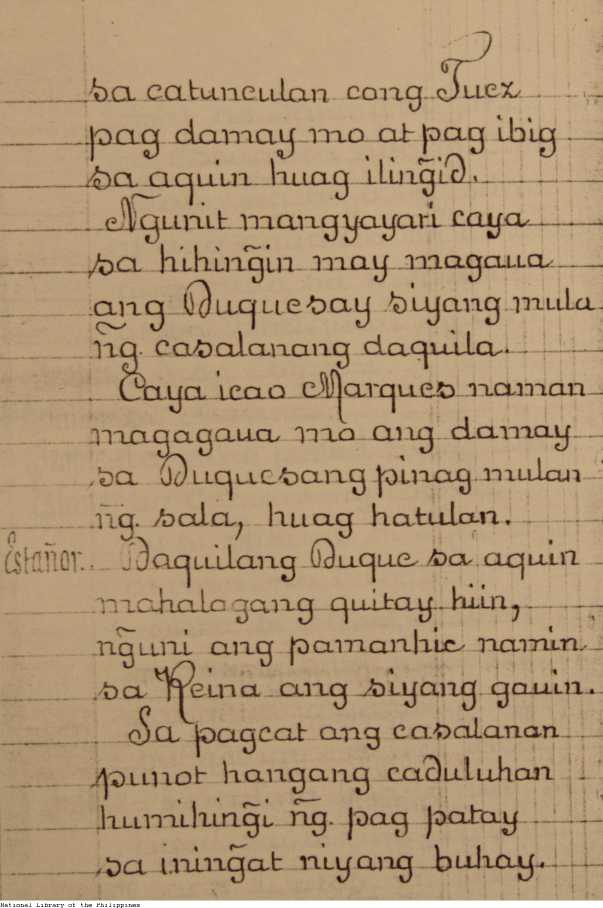 sa catunculan cong Juez
pag damay mo at pag ibig
sa aquin huag ilin̄gid.
N̄gunit mangyayari caya
sa hihin̄gin may magaua
ang Duquesay siyang mula
n̄g. casalanang daquila.
Caya icao Marques naman
magagaua mo ang damay
sa Duquesang pinag mulan
n̄g. sala, huag hatulan.
Estañor. Daquilang Duque sa aquin
mahalagang quitay hiin,
n̄guni ang pamanhic namin
sa Reina ang siyang gauin.
Sa pagcat ang casalanan
punot hangang caduluhan
humihin̄gi n̄g. pag patay
sa inin̄gat niyang buhay.
National Library of the Philippines